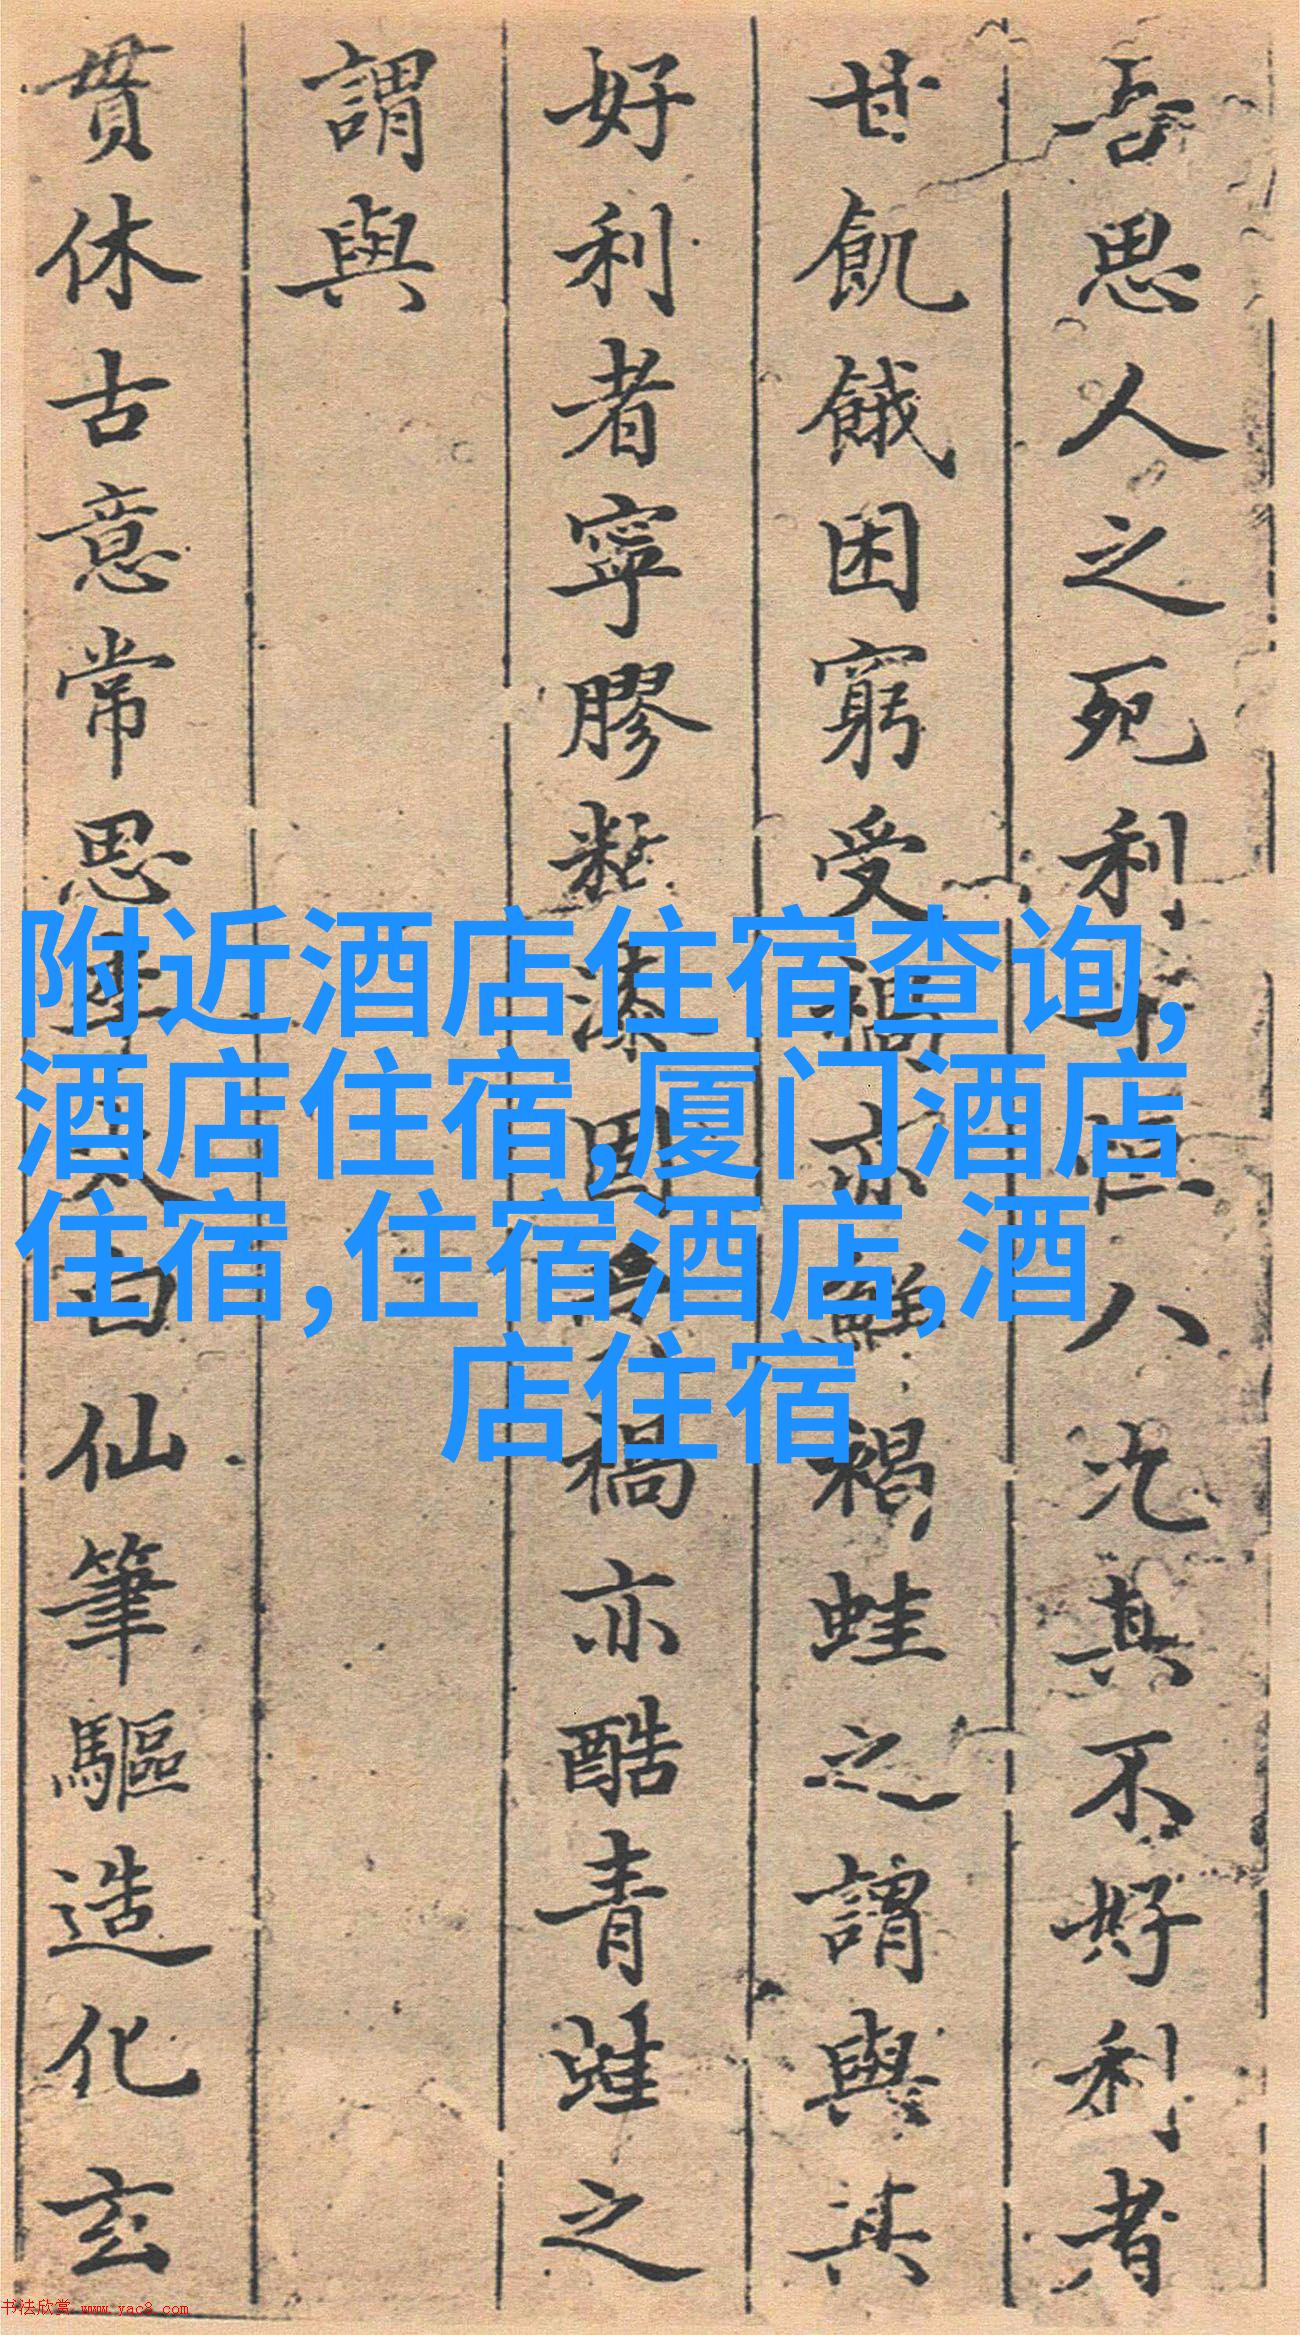 吾思人之死利十恒八九其不好利者
甘飢餓困窮受禍亦鮮稱蛙之謂與其
好利者寧膠粘漆固禍亦酷青蛙之
謂與
貫休古意常思李太白仙筆驅造化玄
附近酒店住宿查询,
酒店住宿,厦门酒店
住宿,住宿酒店,酒
店住宿
书法欣赏 www.yac8.com